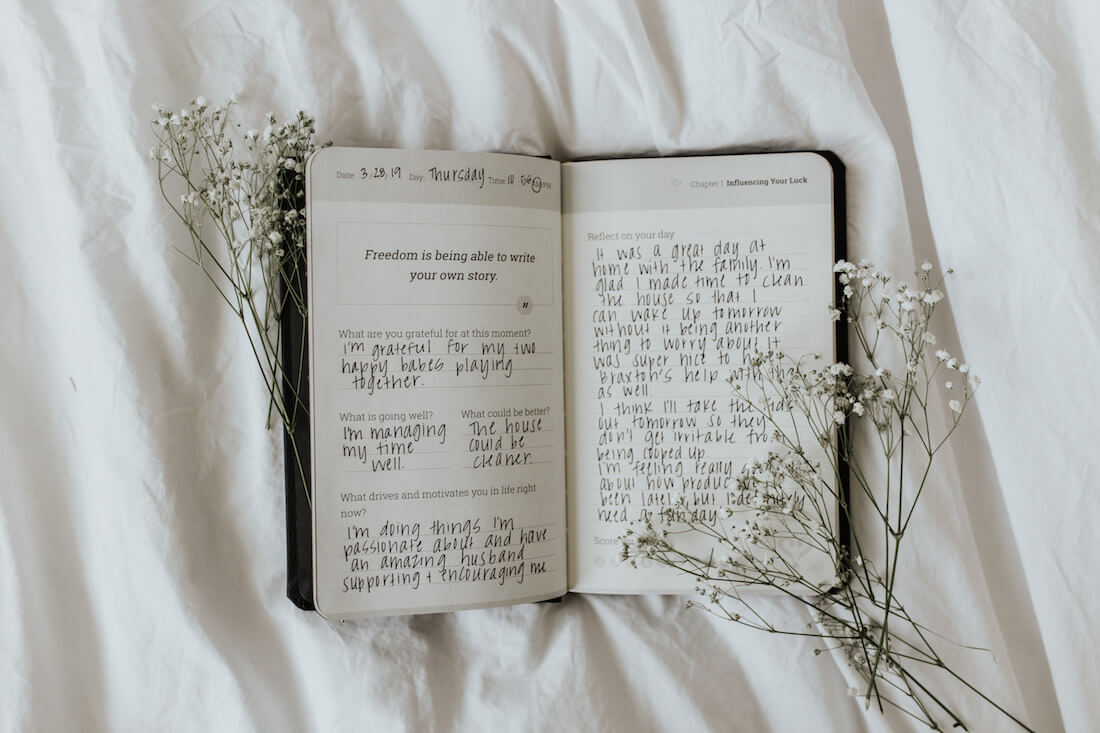 Date: 3/28/19 Day: Thursday Time: 10 56 AM/PM
Freedom is being able to write
your own story.
"
What are you grateful for at this moment?
I'm grateful for my two
happy babes playing
together.
What is going well?
I'm managing
my time
well.
What could be better?
The house
could be
cleaner.
What drives and motivates you in life right
now?
I'm doing things I'm
passionate about and have
an amazing husband
supporting + encouraging me
Chapter | Influencing Your Luck
Reflect on your day
It was a great day at
home with the family. I'm
glad I made time to clean
the house so that I
can wake up tomorrow
without it being another
thing to worry about. It
was super nice to
Braxton's help with that
as well.
I think I'll take the kids
out tomorrow so they
don't get irritable from
being cooped up.
I'm feeling really
about how
been lately, but I
need a fun day
Score